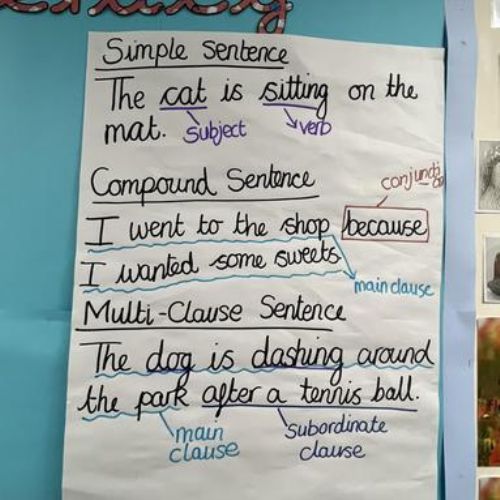 Simple Sentence
The cat is sitting on the
mat. subject verb
Compound Sentence
I went to the shop because
I wanted some sweets
main clause
Multi-Clause Sentence
The dog is dashing around
the park after a tennis ball.
main clause
subordinate clause